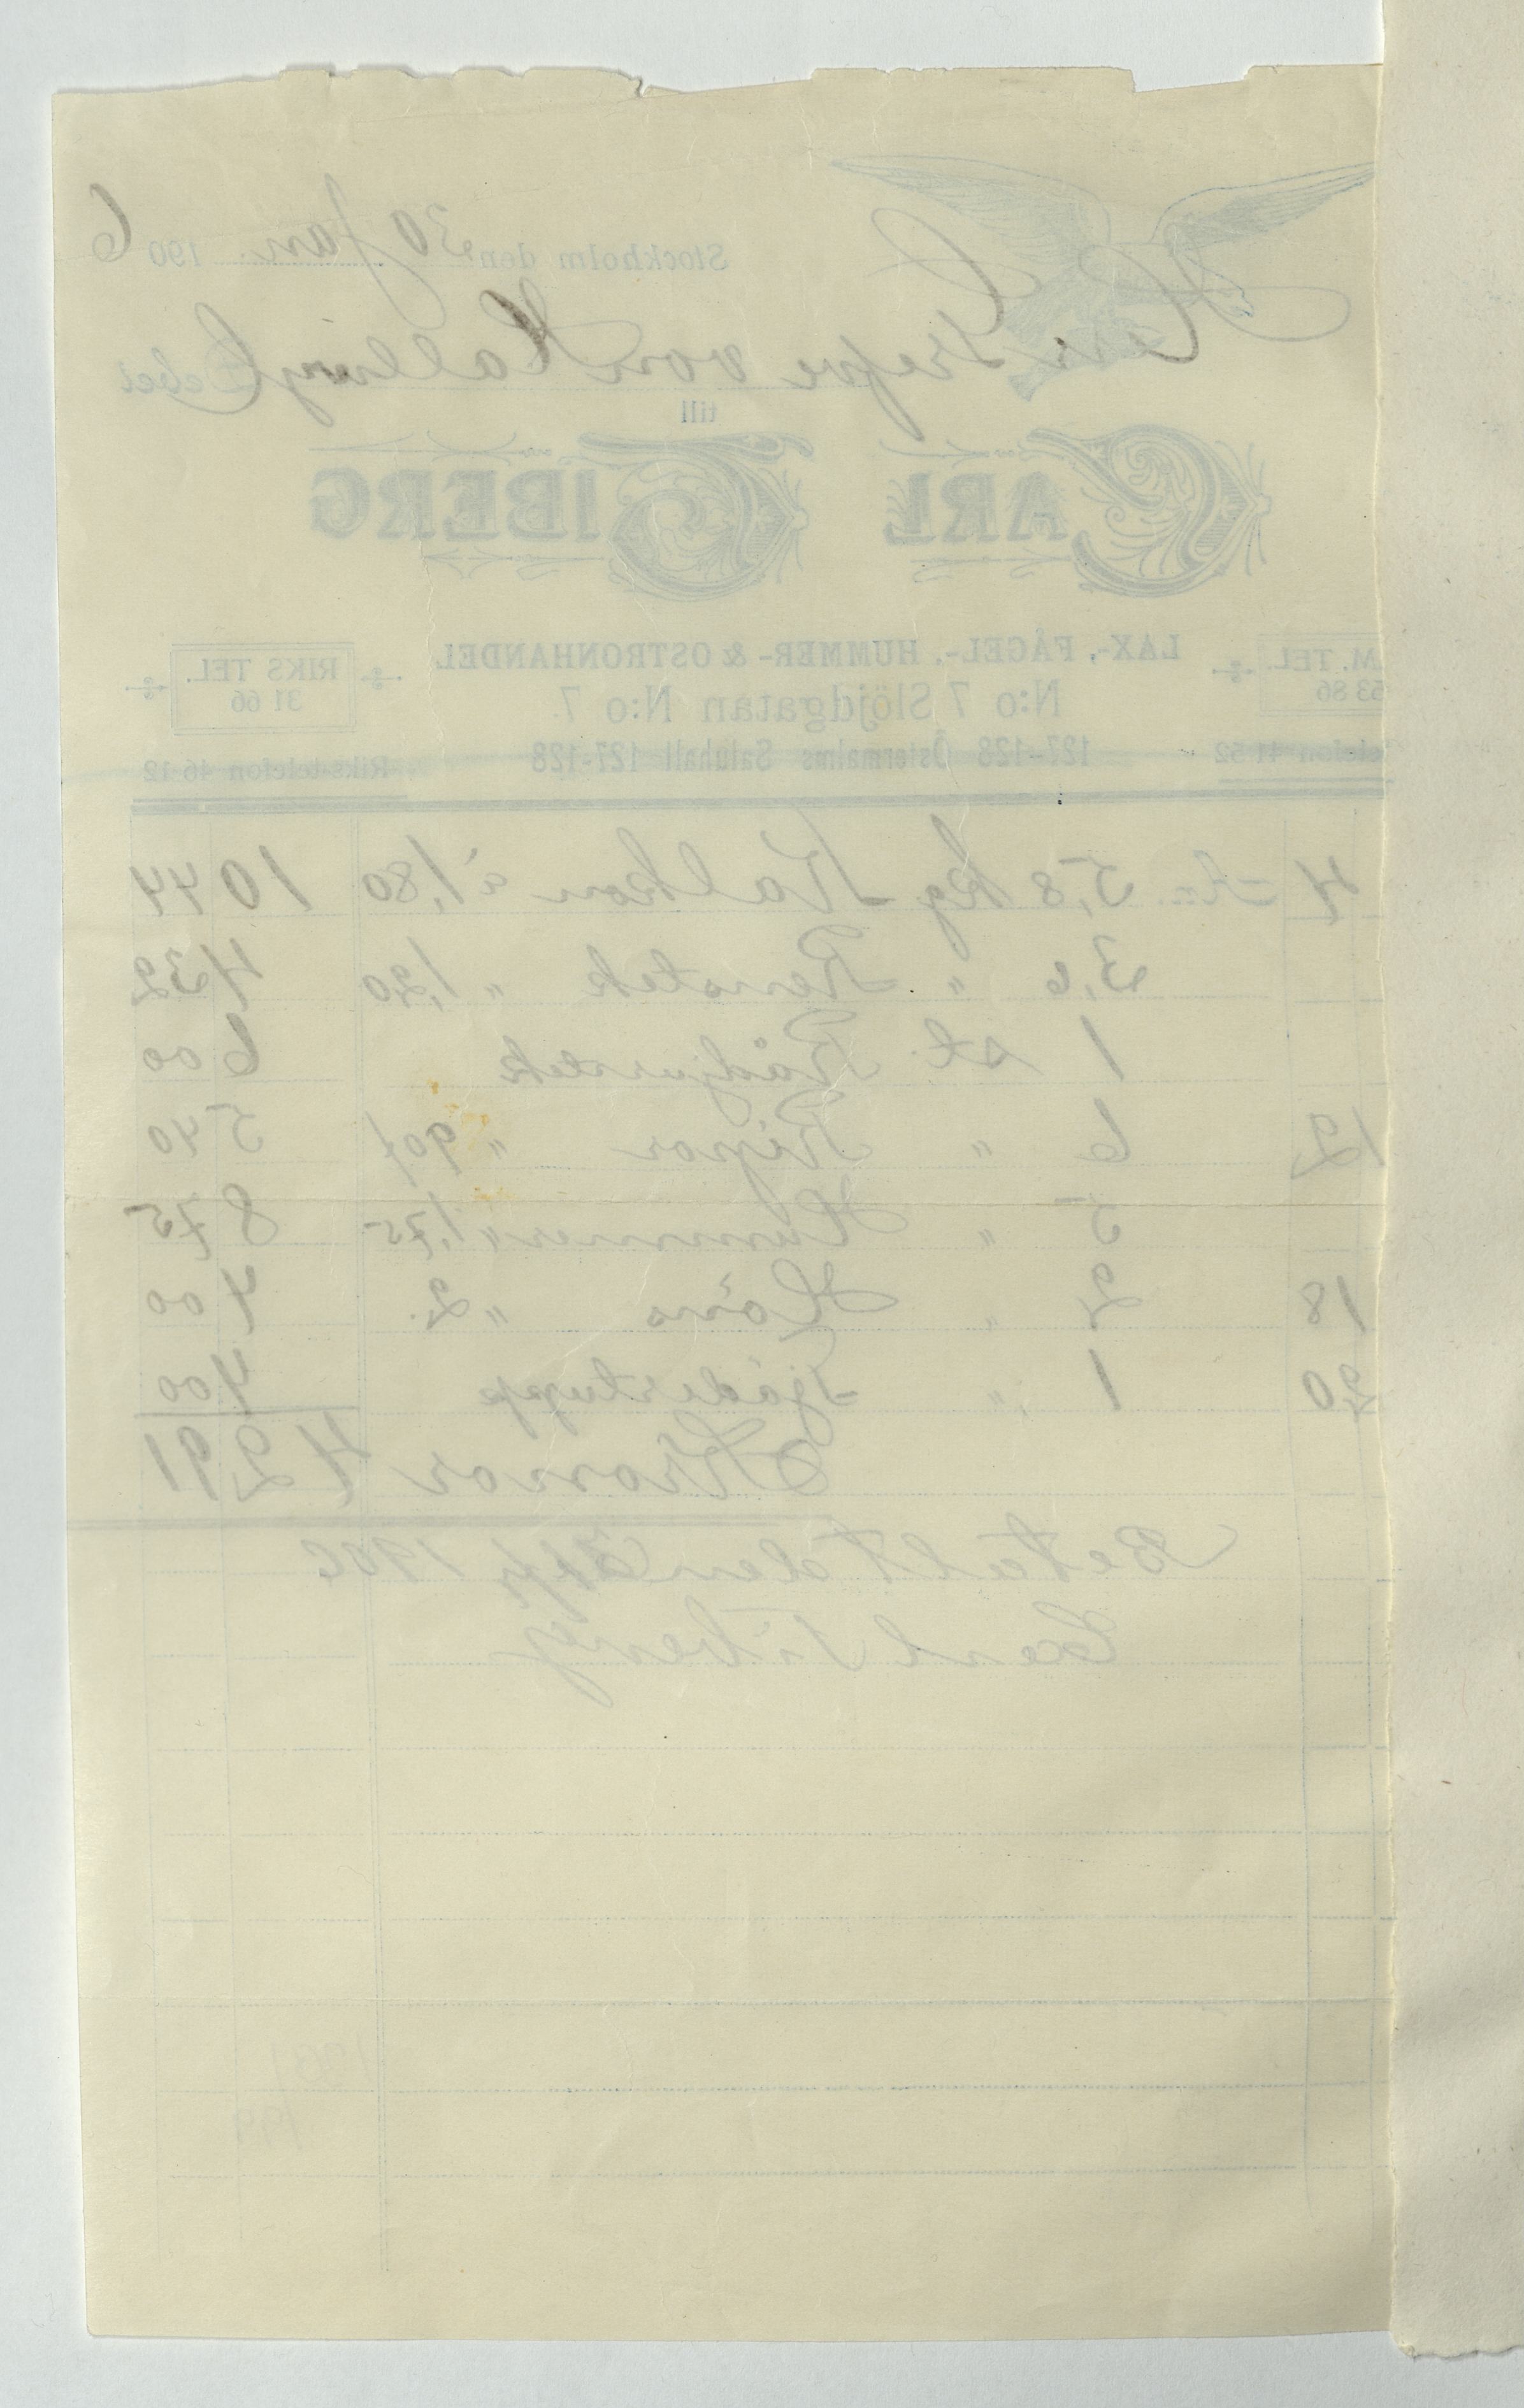 Stockholm den 30 Jan. 1906
Herr Grefve von Hallwyl Debet
till
CARL TIBERG
M. TEL. 53 86
LAX-, FÅGEL-, HUMMER- & OSTRONHANDEL
RIKS TEL. 31 66
N:o 7 Slöjdgatan N:o 7.
telefon 41 52
127-128 Östermalms Saluhall 127-128
Riks-telefon 46 12
4 5,8 kg Kalkon à 1,80 10 44
3,6 " Renstek " 1,20 4 32
1 st. Rådjurstek 6 00
12 6 " Ripor " 90/ 5 40
5 " Hummer " 1,75 8 75
18 2 " Höns " 2. 4 00
20 1 " Tjädertupp 4 00
Kronor 42 91
Betalt den 1906
Carl Tiberg